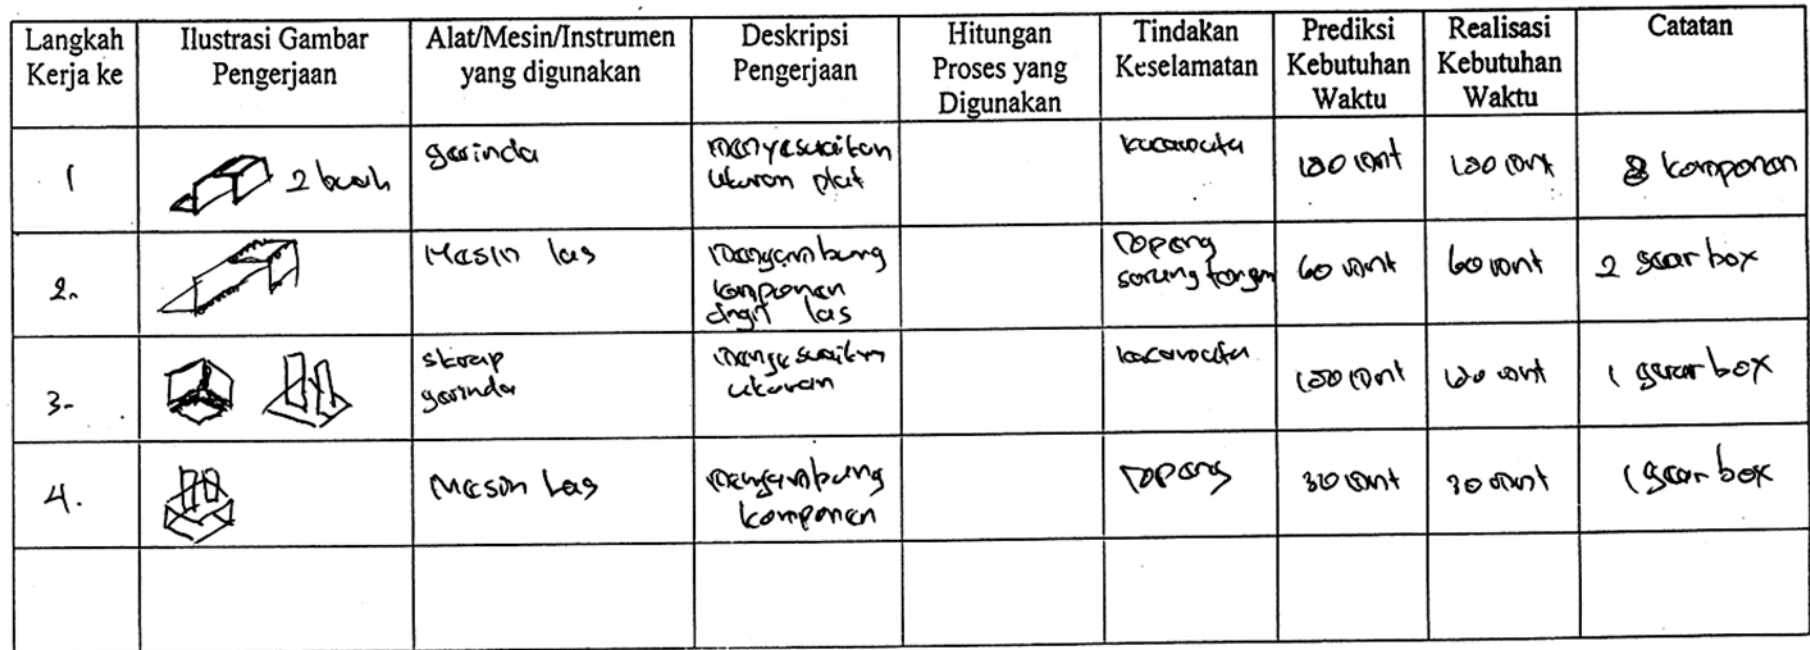 Langkah Kerja ke
Ilustrasi Gambar Pengerjaan
Alat/Mesin/Instrumen yang digunakan
Deskripsi Pengerjaan
Hitungan Proses yang Digunakan
Tindakan Keselamatan
Prediksi Kebutuhan Waktu
Realisasi Kebutuhan Waktu
Catatan
1
2 buah
gerinda
menyesuaikan
ukuran plat
kacamata
mnt
mnt
8 komponen
2.
Mesin las
menyambung
komponen
las
Topeng
sarung tangan
60 mnt
60 mnt
2 gear box
3.
skrap
gerinda
menyesuaikan
ukuran
kacamata
mnt
mnt
1 gear box
4.
Mesin Las
menyambung
komponen
Topeng
30 mnt
30 mnt
1 gear box